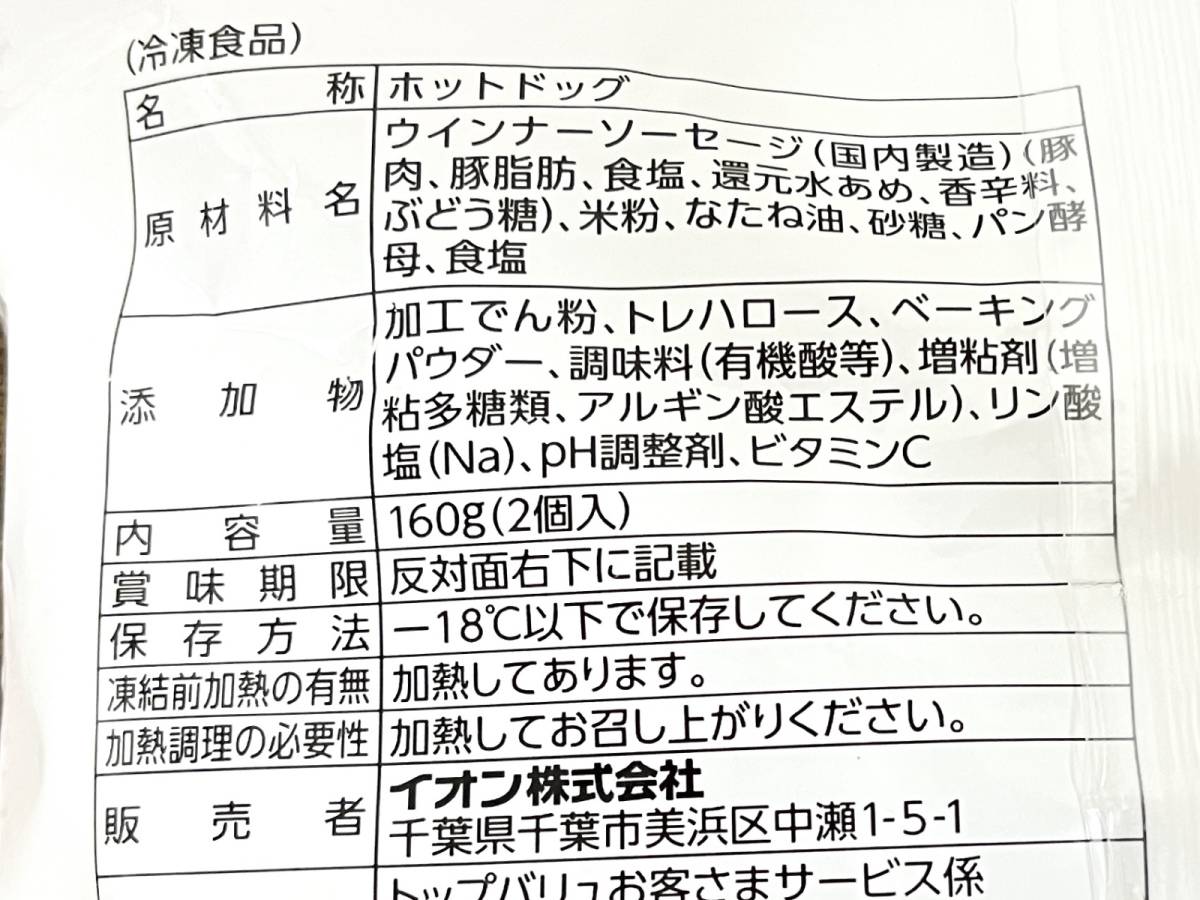 (冷凍食品)
名称 ホットドッグ
原材料名 ウインナーソーセージ(国内製造)(豚
肉、豚脂肪、食塩、還元水あめ、香辛料、
ぶどう糖)、米粉、なたね油、砂糖、パン酵
母、食塩
添加物 加工でん粉、トレハロース、ベーキング
パウダー、調味料(有機酸等)、増粘剤(増
粘多糖類、アルギン酸エステル)、リン酸
塩(Na)、pH調整剤、ビタミンC
内容量 160g(2個入)
賞味期限 反対面右下に記載
保存方法 －18℃以下で保存してください。
凍結前加熱の有無 加熱してあります。
加熱調理の必要性 加熱してお召し上がりください。
販売者 イオン株式会社
千葉県千葉市美浜区中瀬1-5-1
トップバリュお客さまサービス係